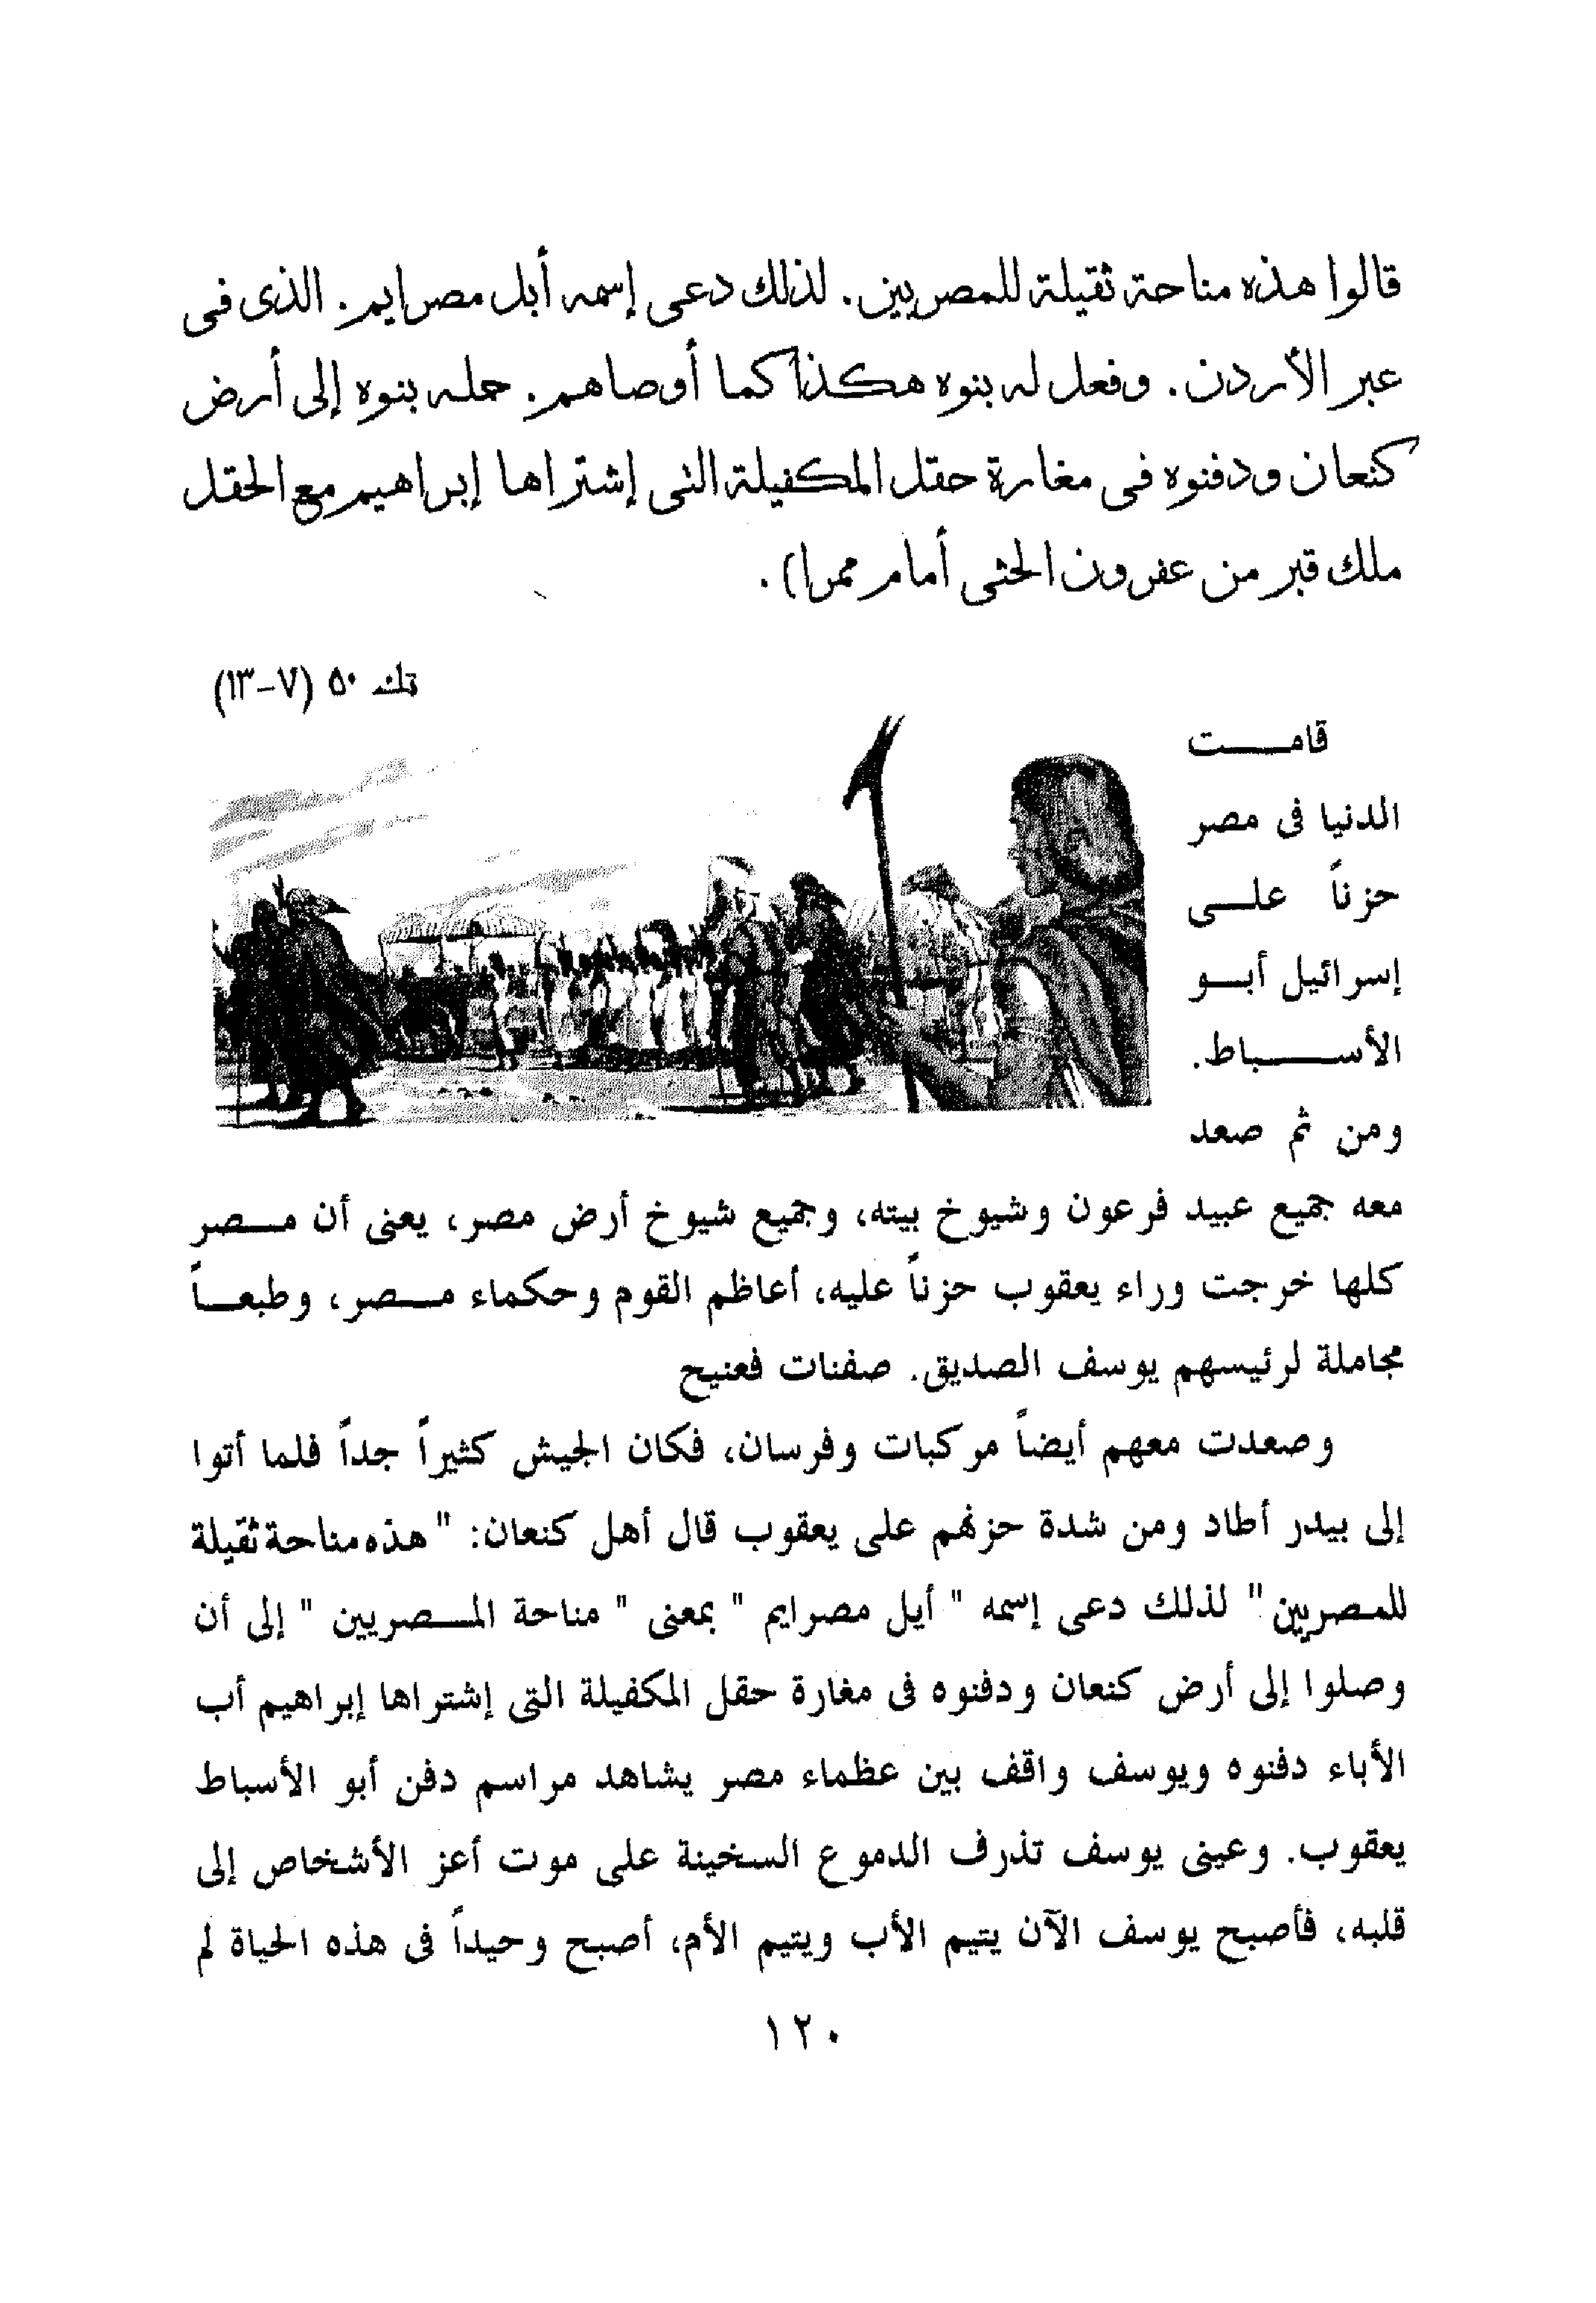 قالوا هذه مناحة ثقيلة للمصريين. لذلك دعى إسمه أبل مصرايم. الذى فى
عبر الأردن. وفعل له بنوه هكذا كما أوصاهم. حمله بنوه إلى أرض
كنعان ودفنوه فى مغارة حقل المكفيلة التى إشتراها إبراهيم مع الحقل
ملك قبر من عفرون الحثى أمام ممرا).
تك ٥٠ (٧-١٣)
قامت
الدنيا فى مصر
حزناً على
إسرائيل أبو
الأسباط.
ومن ثم صعد
معه جميع عبيد فرعون وشيوخ بيته، وجميع شيوخ أرض مصر، يعنى أن مصر
كلها خرجت وراء يعقوب حزناً عليه، أعاظم القوم وحكماء مصر، وطبعاً
مجاملة لرئيسهم يوسف الصديق. صفنات فعنيح
وصعدت معهم أيضاً مركبات وفرسان، فكان الجيش كثيراً جداً فلما أتوا
إلى بيدر أطاد ومن شدة حزنهم على يعقوب قال أهل كنعان: " هذه مناحة ثقيلة
للمصريين" لذلك دعى إسمه " أيل مصرايم " بمعنى " مناحة المصريين " إلى أن
وصلوا إلى أرض كنعان ودفنوه فى مغارة حقل المكفيلة التى إشتراها إبراهيم أب
الأباء دفنوه ويوسف واقف بين عظماء مصر يشاهد مراسم دفن أبو الأسباط
يعقوب. وعينى يوسف تذرف الدموع السخينة على موت أعز الأشخاص إلى
قلبه، فأصبح يوسف الآن يتيم الأب ويتيم الأم، أصبح وحيداً فى هذه الحياة لم
١٢٠